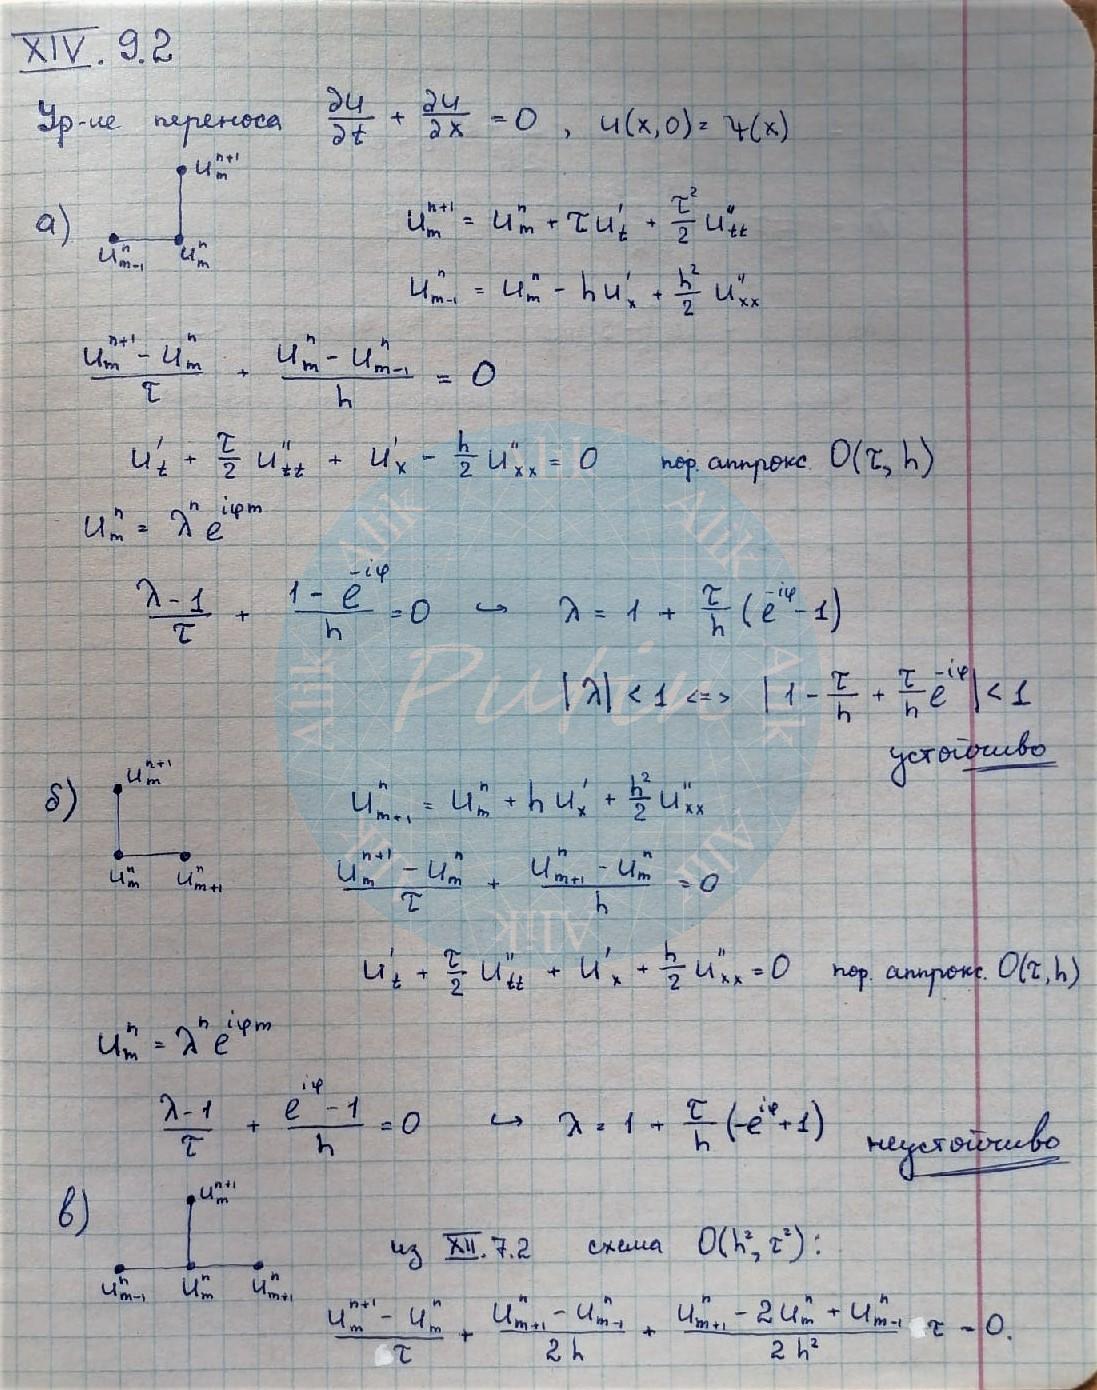 XIV. 9.2
Ур-ие переноса ∂u/∂t + ∂u/∂x = 0, u(x,0) = ψ(x)
u_m^{n+1}
а)
u_{m-1}^n u_m^n
u_m^{n+1} = u_m^n + τu'_t + τ²/2 u''_{tt}
u_{m-1}^n = u_m^n - hu'_x + h²/2 u''_{xx}
(u_m^{n+1} - u_m^n)/τ + (u_m^n - u_{m-1}^n)/h = 0
u'_t + τ/2 u''_{tt} + u'_x - h/2 u''_{xx} = 0 пор. аппрокс. O(τ, h)
u_m^n = λ^n e^{iφm}
(λ-1)/τ + (1 - e^{-iφ})/h = 0 ↪ λ = 1 + τ/h (e^{-iφ} - 1)
|λ| < 1 <=> |1 - τ/h + τ/h e^{-iφ}| < 1
устойчиво
Putin
Alik Alik Alik Alik Alik Alik Alik Alik
б)
u_m^{n+1}
u_m^n u_{m+1}^n
u_{m+1}^n = u_m^n + hu'_x + h²/2 u''_{xx}
(u_m^{n+1} - u_m^n)/τ + (u_{m+1}^n - u_m^n)/h = 0
u'_t + τ/2 u''_{tt} + u'_x + h/2 u''_{xx} = 0 пор. аппрокс. O(τ, h)
u_m^n = λ^n e^{iφm}
(λ-1)/τ + (e^{iφ} - 1)/h = 0 ↪ λ = 1 + τ/h (-e^{iφ} + 1)
неустойчиво
в)
u_m^{n+1}
u_{m-1}^n u_m^n u_{m+1}^n
из XII. 7.2 схема O(h², τ²):
(u_m^{n+1} - u_m^n)/τ + (u_{m+1}^n - u_{m-1}^n)/2h + (u_{m+1}^n - 2u_m^n + u_{m-1}^n)/2h² τ = 0.